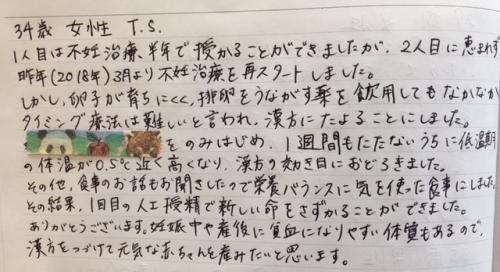 34歳 女性 T.S.
1人目は不妊治療、半年で授かることができましたが、2人目に恵まれず
昨年(2018年)3月より不妊治療を再スタートしました。
しかし、卵子が育ちにくく、排卵をうながす薬を飲用してもなかなか
タイミング療法は難しいと言われ、漢方にたよることにしました。
をのみはじめ、1週間もたたないうちに低温期
の体温が0.5℃近く高くなり、漢方の効き目におどろきました。
その他、食事のお話もお聞きしたので栄養バランスに気を使った食事にしました。
その結果、1回目の人工授精で新しい命をさずかることができました。
ありがとうございます。妊娠中や産後に貧血になりやすい体質もあるので、
漢方をつづけて元気な赤ちゃんを産みたいと思います。